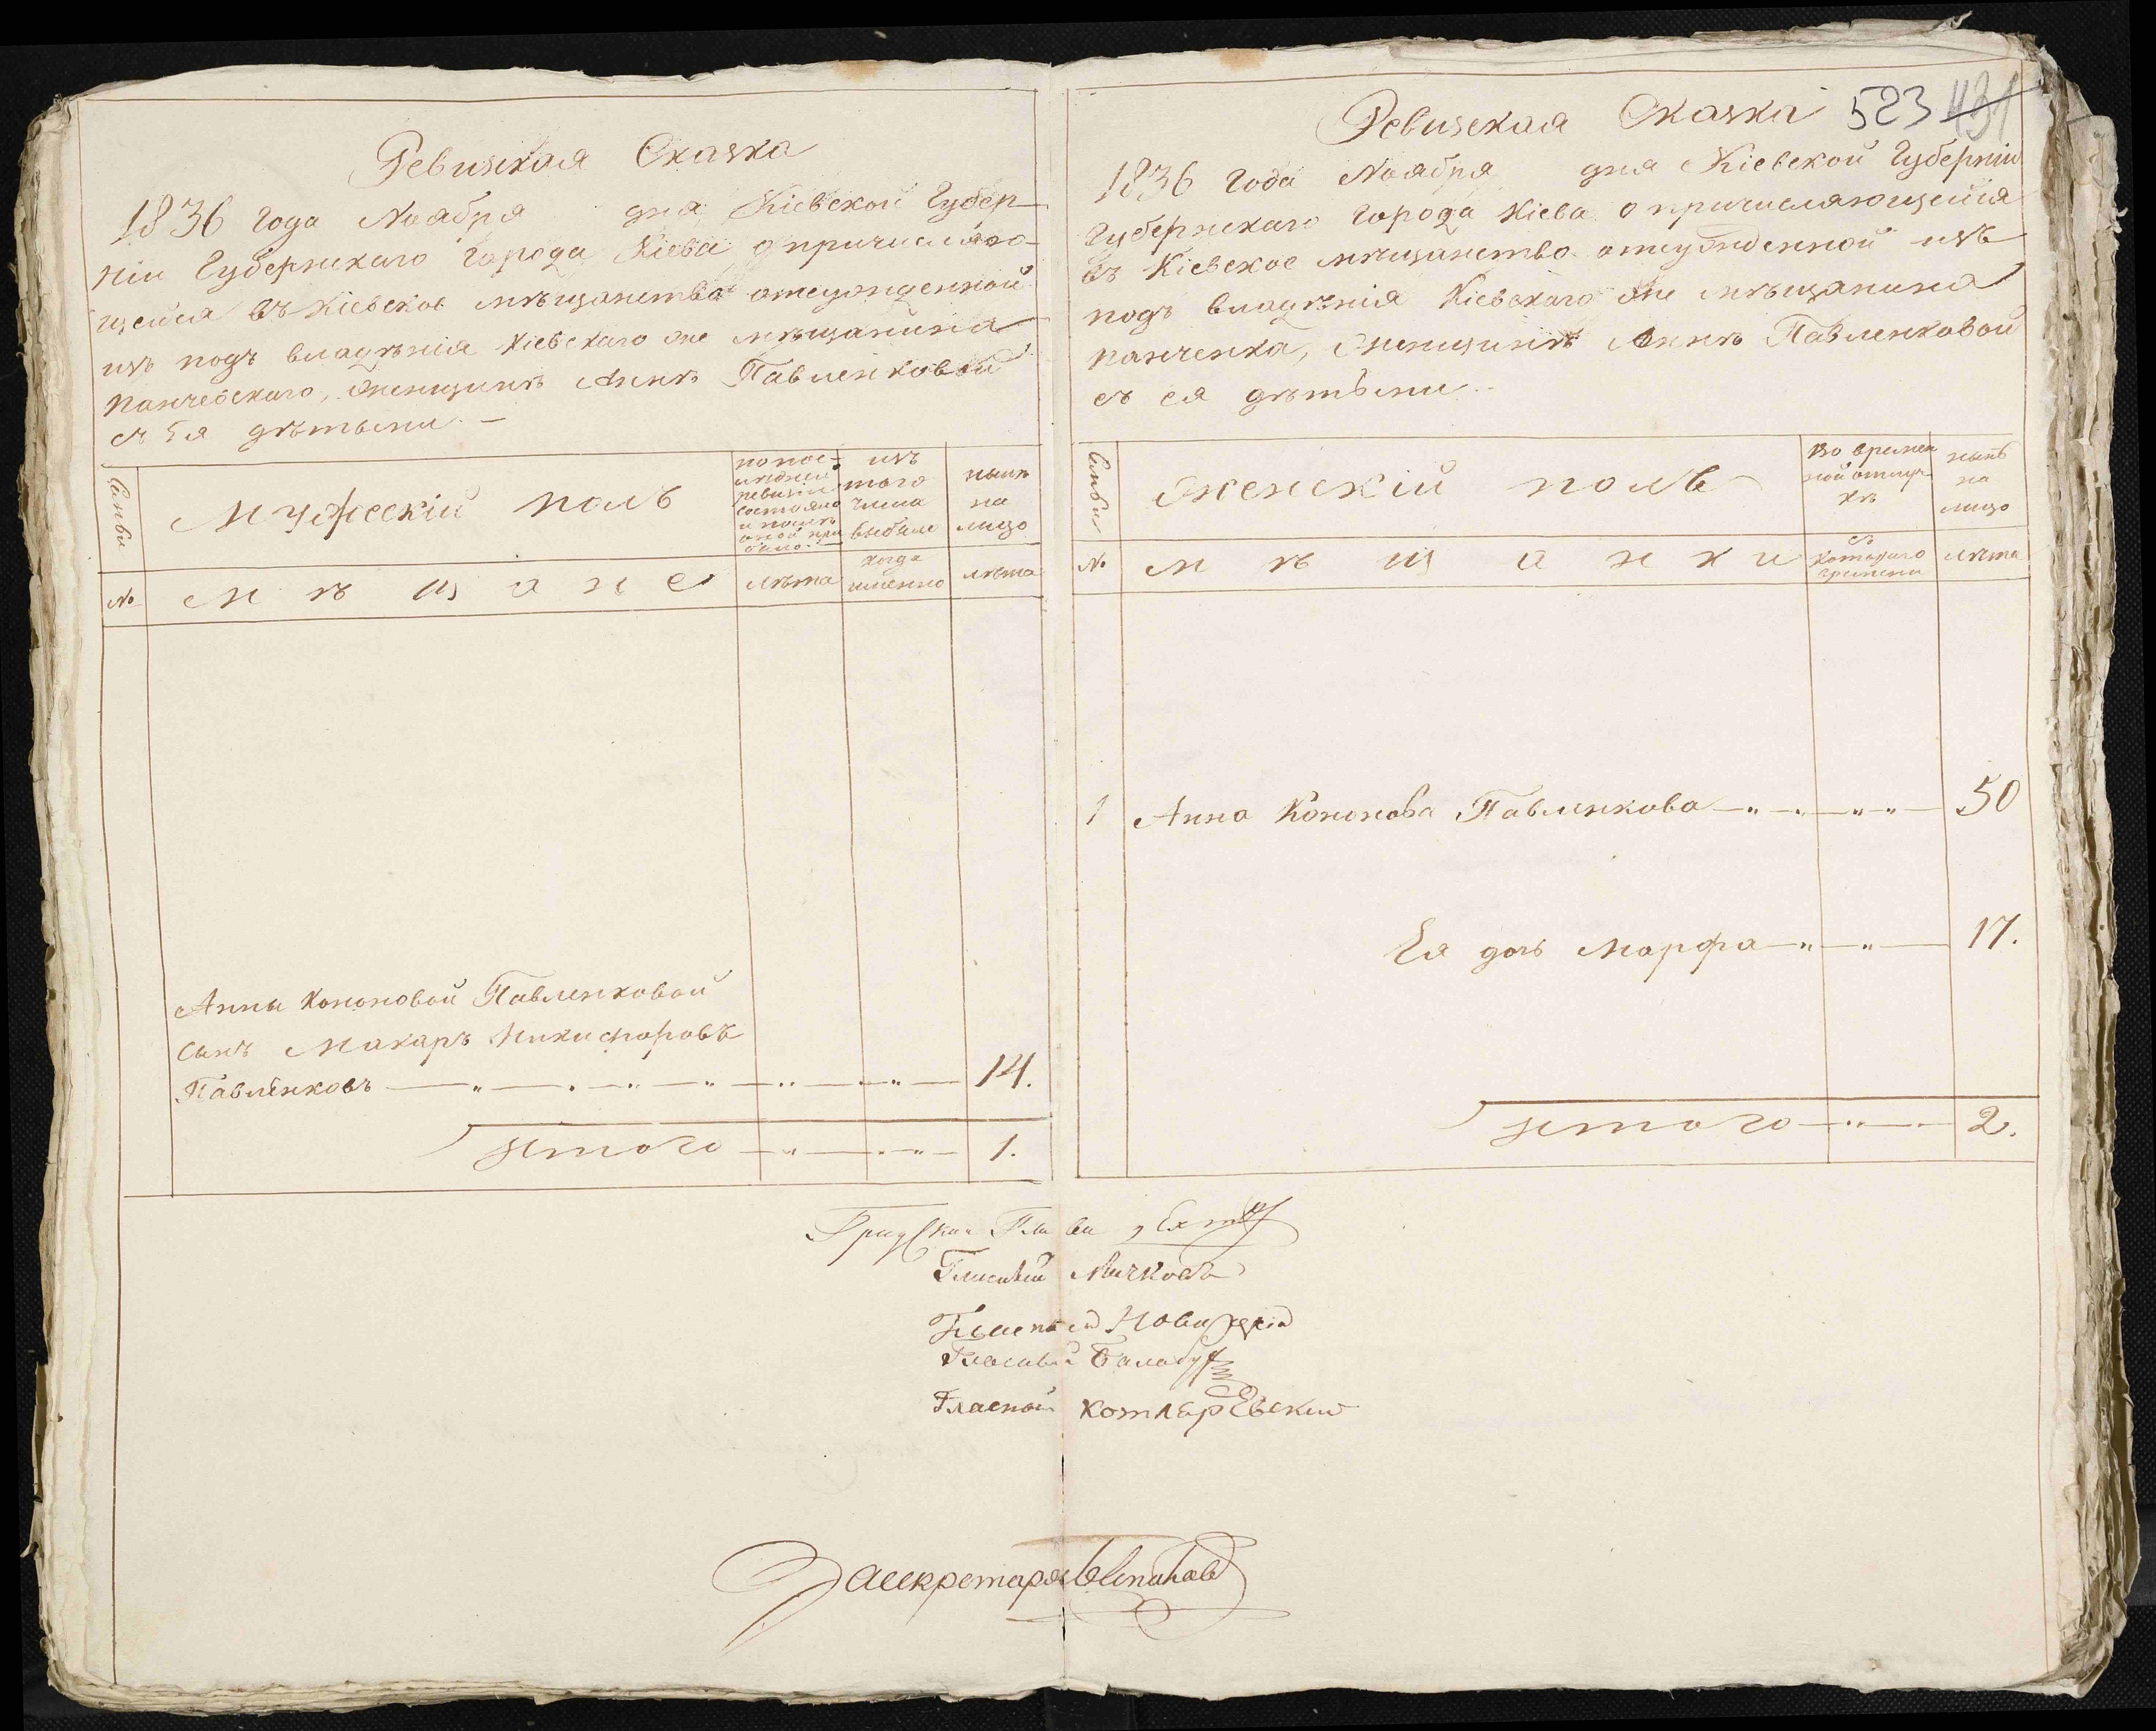 Ревизкая Сказка
1836 года Ноября дня Кіевской Губер-
ніи Губернскаго города Кіева, о причисляю-
щейся въ Кіевское мѣщанство отсужденной
изъ подъ владѣнія Кіевскаго же мѣщанина
Панчевскаго, женщинѣ Аннѣ Павленковой
съ Ея дѣтьми. –
Семьи
Мужескій полъ
по пос-
лѣдней
ревизіи
состояло
и послѣ
оной при
было.
изъ
того
числа
выбыло
нынѣ
на
лицо
№
мѣщане
лѣта
когда
именно
лѣта
Анны Кононовой Павленковой
сынъ Макаръ Никифоровъ
Павлёнковъ 14.
Итого 1.
523 431
Ревизская Сказка
1836 года Ноября дня Кіевской Губерніи
Губернскаго города Кіева о причисляющейся
въ Кіевское мѣщанство отсужденной изъ
подъ владѣнія Кіевскаго же мѣщанина
Панченка, женщинѣ Аннѣ Павленковой
съ ея дѣтьми. –
Семьи
Женскій полъ
Во времен
ной отлуч
кѣ
нынѣ
на
лицо
№
мѣщанки
съ
котораго
времени
лѣта
1 Анна Кононова Павленкова 50
Ея дочь Марфа 17.
Итого 2.
Градской Глава
Гласный
Гласный
Гласный Балабу
Гласной Котляревский
За секретаря